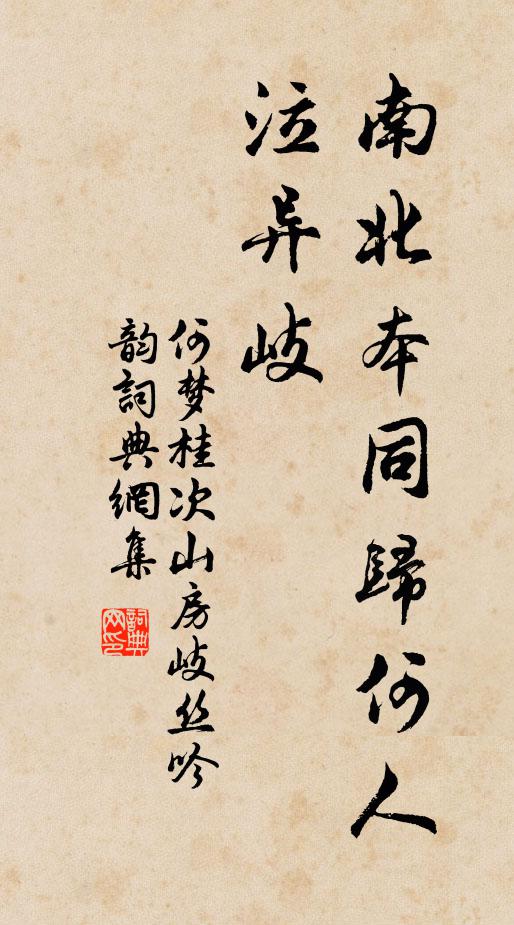 南北本同歸何人
泣异岐
何梦桂次山房岐丝吟
韵詞典網集
詞典网印